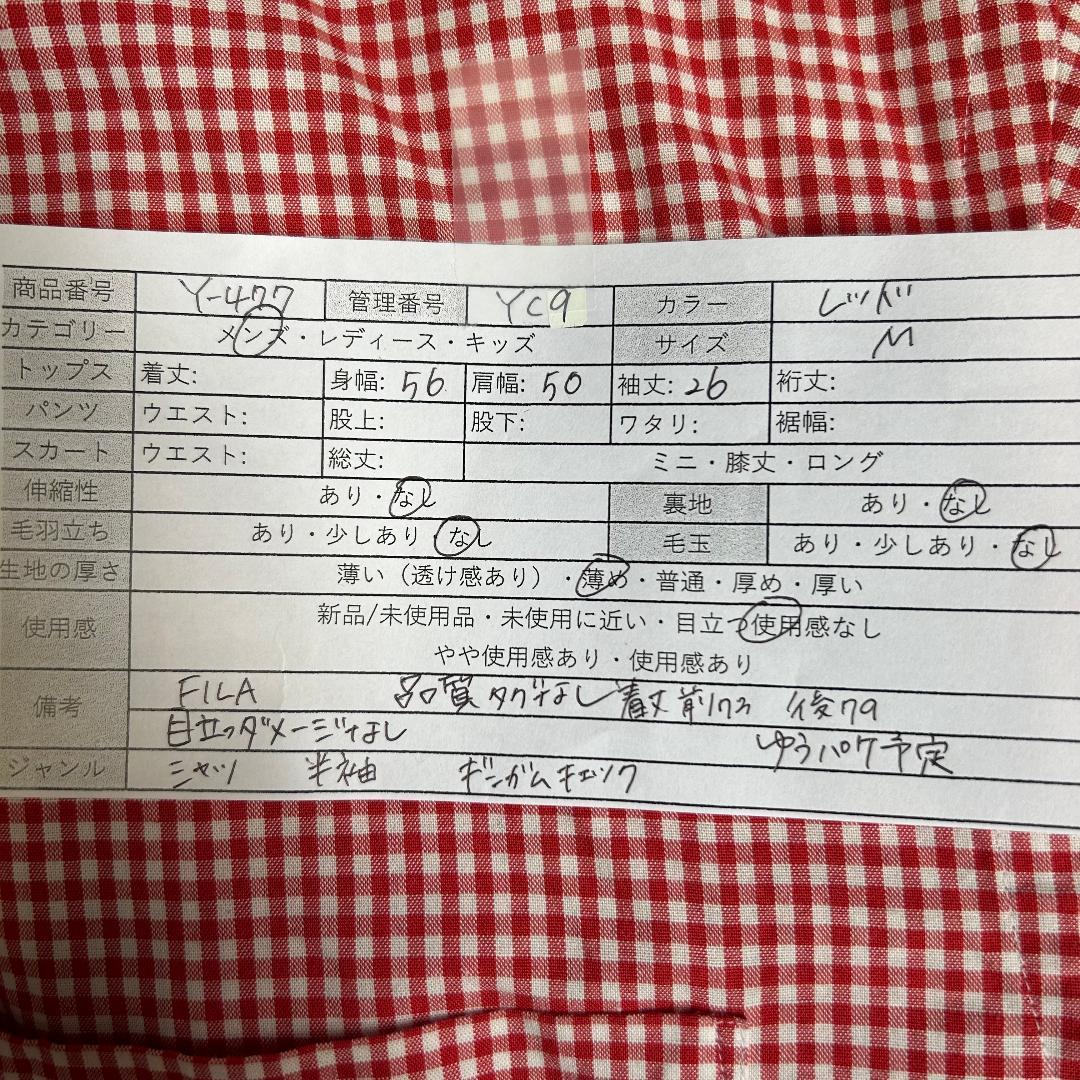 商品番号 Y-477 管理番号 YC9 カラー レッド
カテゴリー メンズ・レディース・キッズ サイズ M
トップス 着丈: 身幅: 56 肩幅: 50 袖丈: 26 裄丈:
パンツ ウエスト: 股上: 股下: ワタリ: 裾幅:
スカート ウエスト: 総丈: ミニ・膝丈・ロング
伸縮性 あり・なし 裏地 あり・なし
毛羽立ち あり・少しあり・なし 毛玉 あり・少しあり・なし
生地の厚さ 薄い（透け感あり）・薄め・普通・厚め・厚い
使用感 新品/未使用品・未使用に近い・目立つ使用感なし
やや使用感あり・使用感あり
備考 FILA 品質タグなし 着丈 前 後79
目立つダメージなし ゆうパケ予定
ジャンル シャツ 半袖 ギンガムチェック